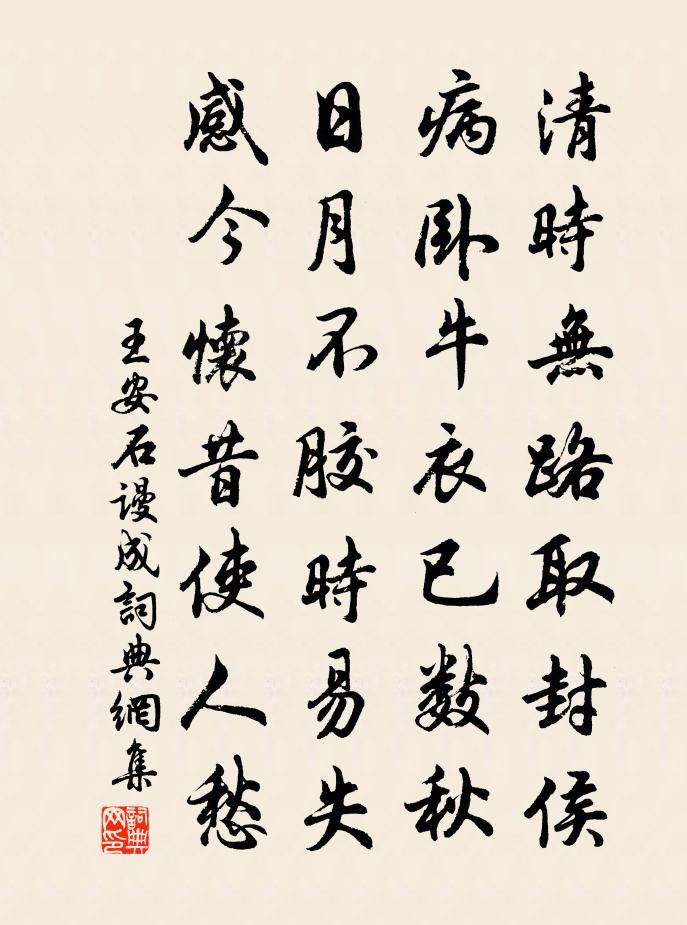 清時無路取封侯
病卧牛衣已數秋
日月不膠時易失
感今懷昔使人愁
王安石謾成詞典網集
詞典網印